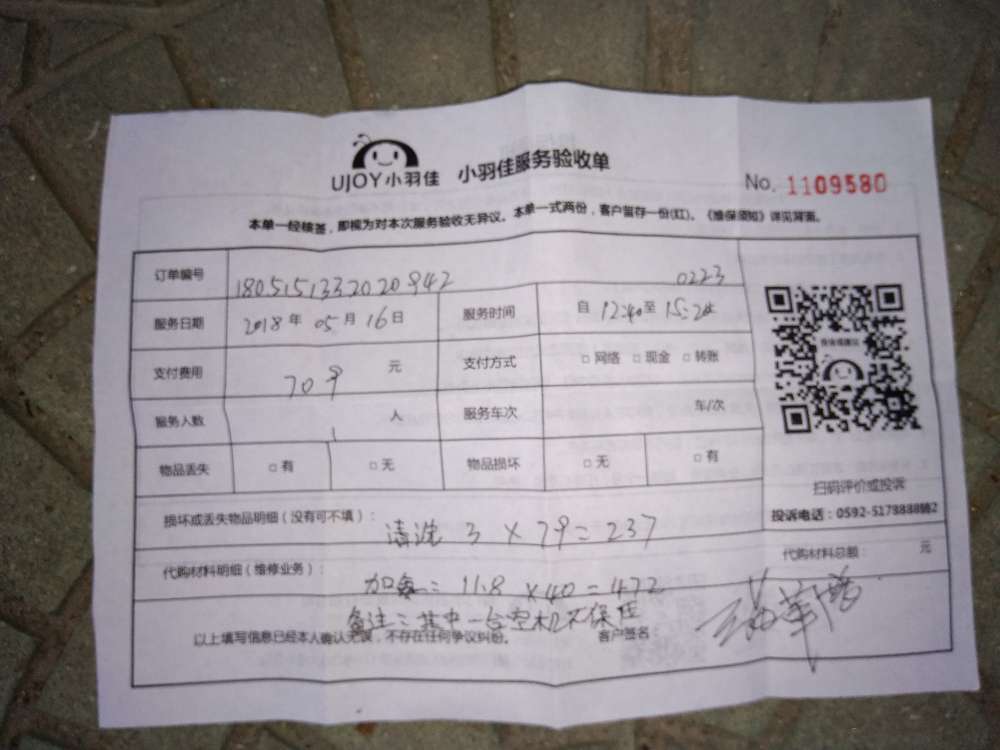 UJOY小羽佳 小羽佳服务验收单
No. 1109580
本单一经核签，即视为对本次服务验收无异议。本单一式两份，客户留存一份(红)。《维保须知》详见背面。
订单编号 1805151332020942 0223
服务日期 2018年05月16日 服务时间 自12:40至15:20
支付费用 709 元 支付方式 □网络 □现金 □转账
服务人数 1 人 服务车次 车/次
物品丢失 □有 □无 物品损坏 □无 □有
扫码评价或投诉
损坏或丢失物品明细（没有可不填）： 清洗 3×79=237
投诉电话：0592-5178888
代购材料明细（维修业务）： 加氟= 11.8×40=472
代购材料总额： 元
备注：其中一台空机不保压
以上填写信息已经本人确认无误，不存在任何争议纠纷。 客户签名：